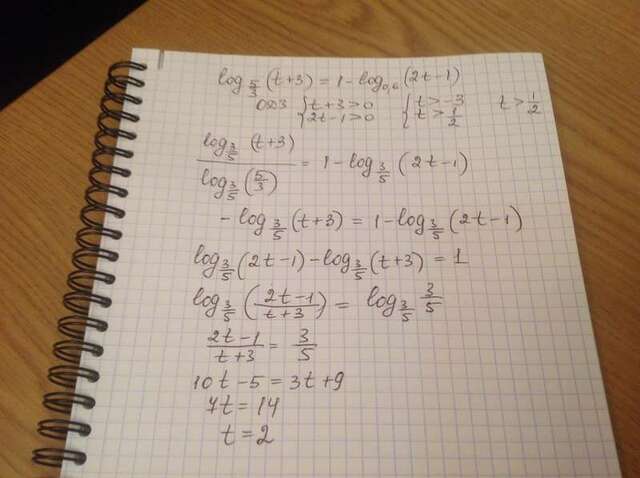 log_{5/3}(t+3) = 1 - log_{0,6}(2t-1)
ОДЗ { t+3>0 2t-1>0 { t>-3 t>1/2 t>1/2
log_{3/5}(t+3) / log_{3/5}(5/3) = 1 - log_{3/5}(2t-1)
- log_{3/5}(t+3) = 1 - log_{3/5}(2t-1)
log_{3/5}(2t-1) - log_{3/5}(t+3) = 1
log_{3/5}((2t-1)/(t+3)) = log_{3/5} 3/5
(2t-1)/(t+3) = 3/5
10t-5 = 3t+9
7t = 14
t = 2